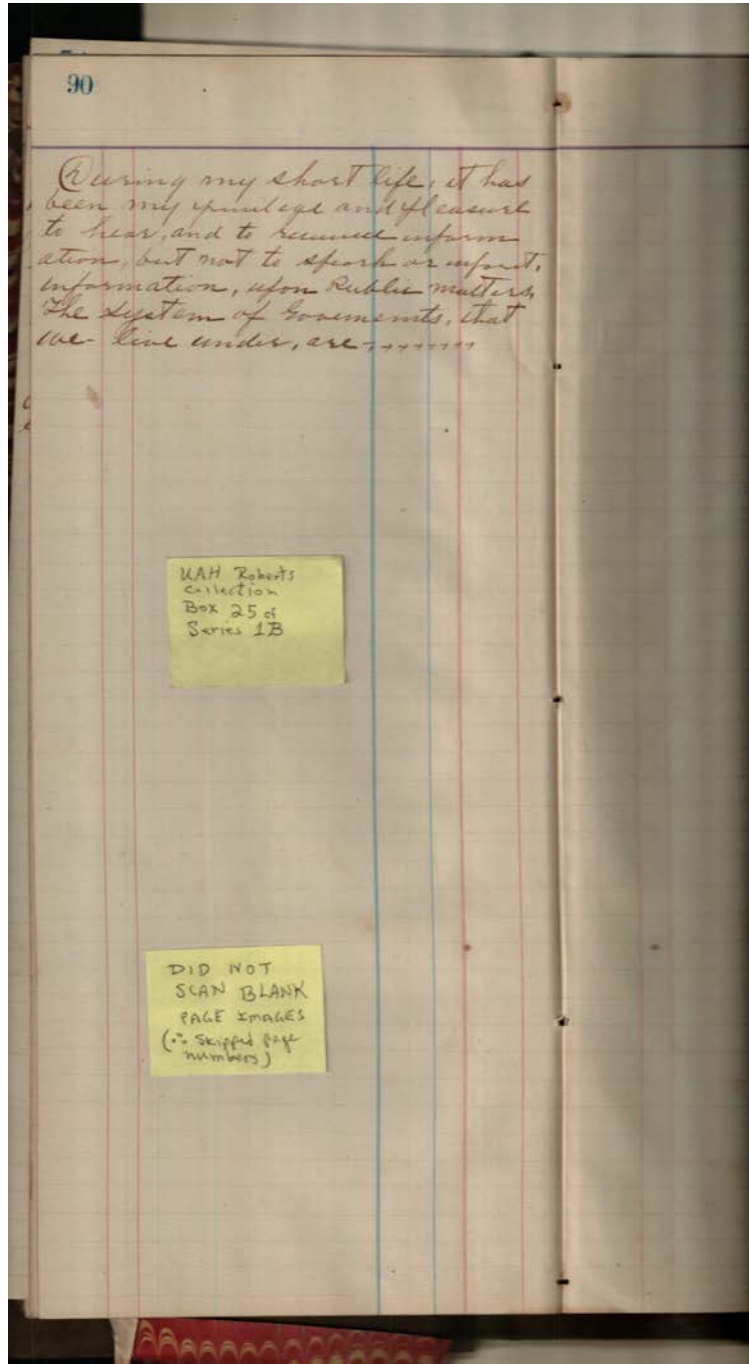 90
During my short life, it has
been my privilege and pleasure
to hear, and to receive inform
ation, but not to speak or impart,
information, upon Public matters,
The System of Governments, that
we live under, are
UAH Roberts
Collection
Box 25 of
Series 1B
DID NOT
SCAN BLANK
PAGE IMAGES
(∴ Skipped page
numbers)